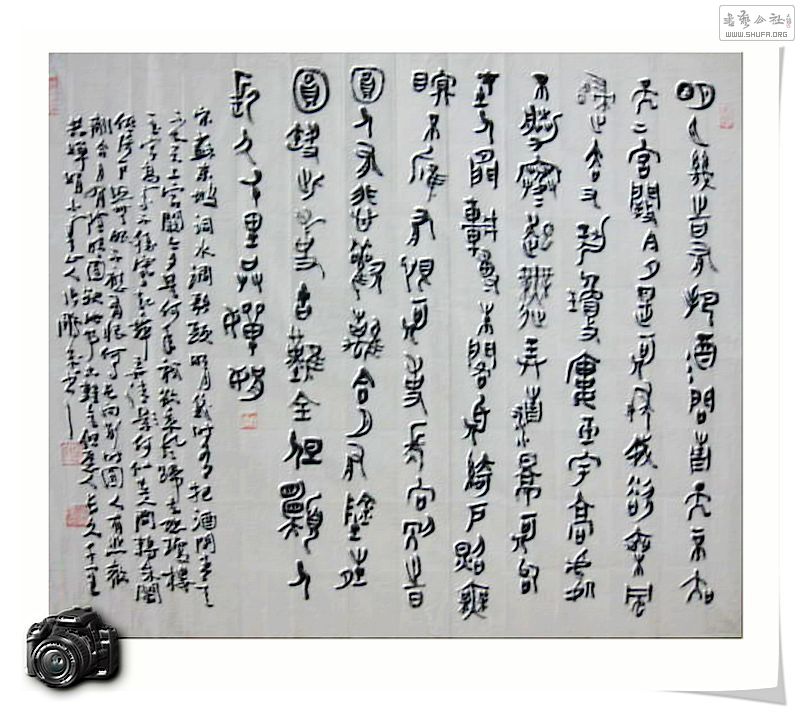 书艺公社
WWW.SHUFA.ORG
明月幾時有把酒問青天不知
天上宮闕今夕是何年我欲乘風
歸去又恐瓊樓玉宇高處
不勝寒起舞弄清影何似
在人間轉朱閣低綺戶照無
眠不應有恨何事長向別時
圓人有悲歡離合月有陰晴
圓缺此事古難全但願人
長久千里共嬋娟
宋蘇東坡詞水調歌頭明月幾時有把酒問青天
不知天上宮闕今夕是何年我欲乘風歸去又恐瓊樓
玉宇高處不勝寒起舞弄清影何似在人間轉朱閣
低綺戶照無眠不應有恨何事長向別時圓人有悲歡
離合月有陰晴圓缺此事古難全但願人長久千里
共嬋娟